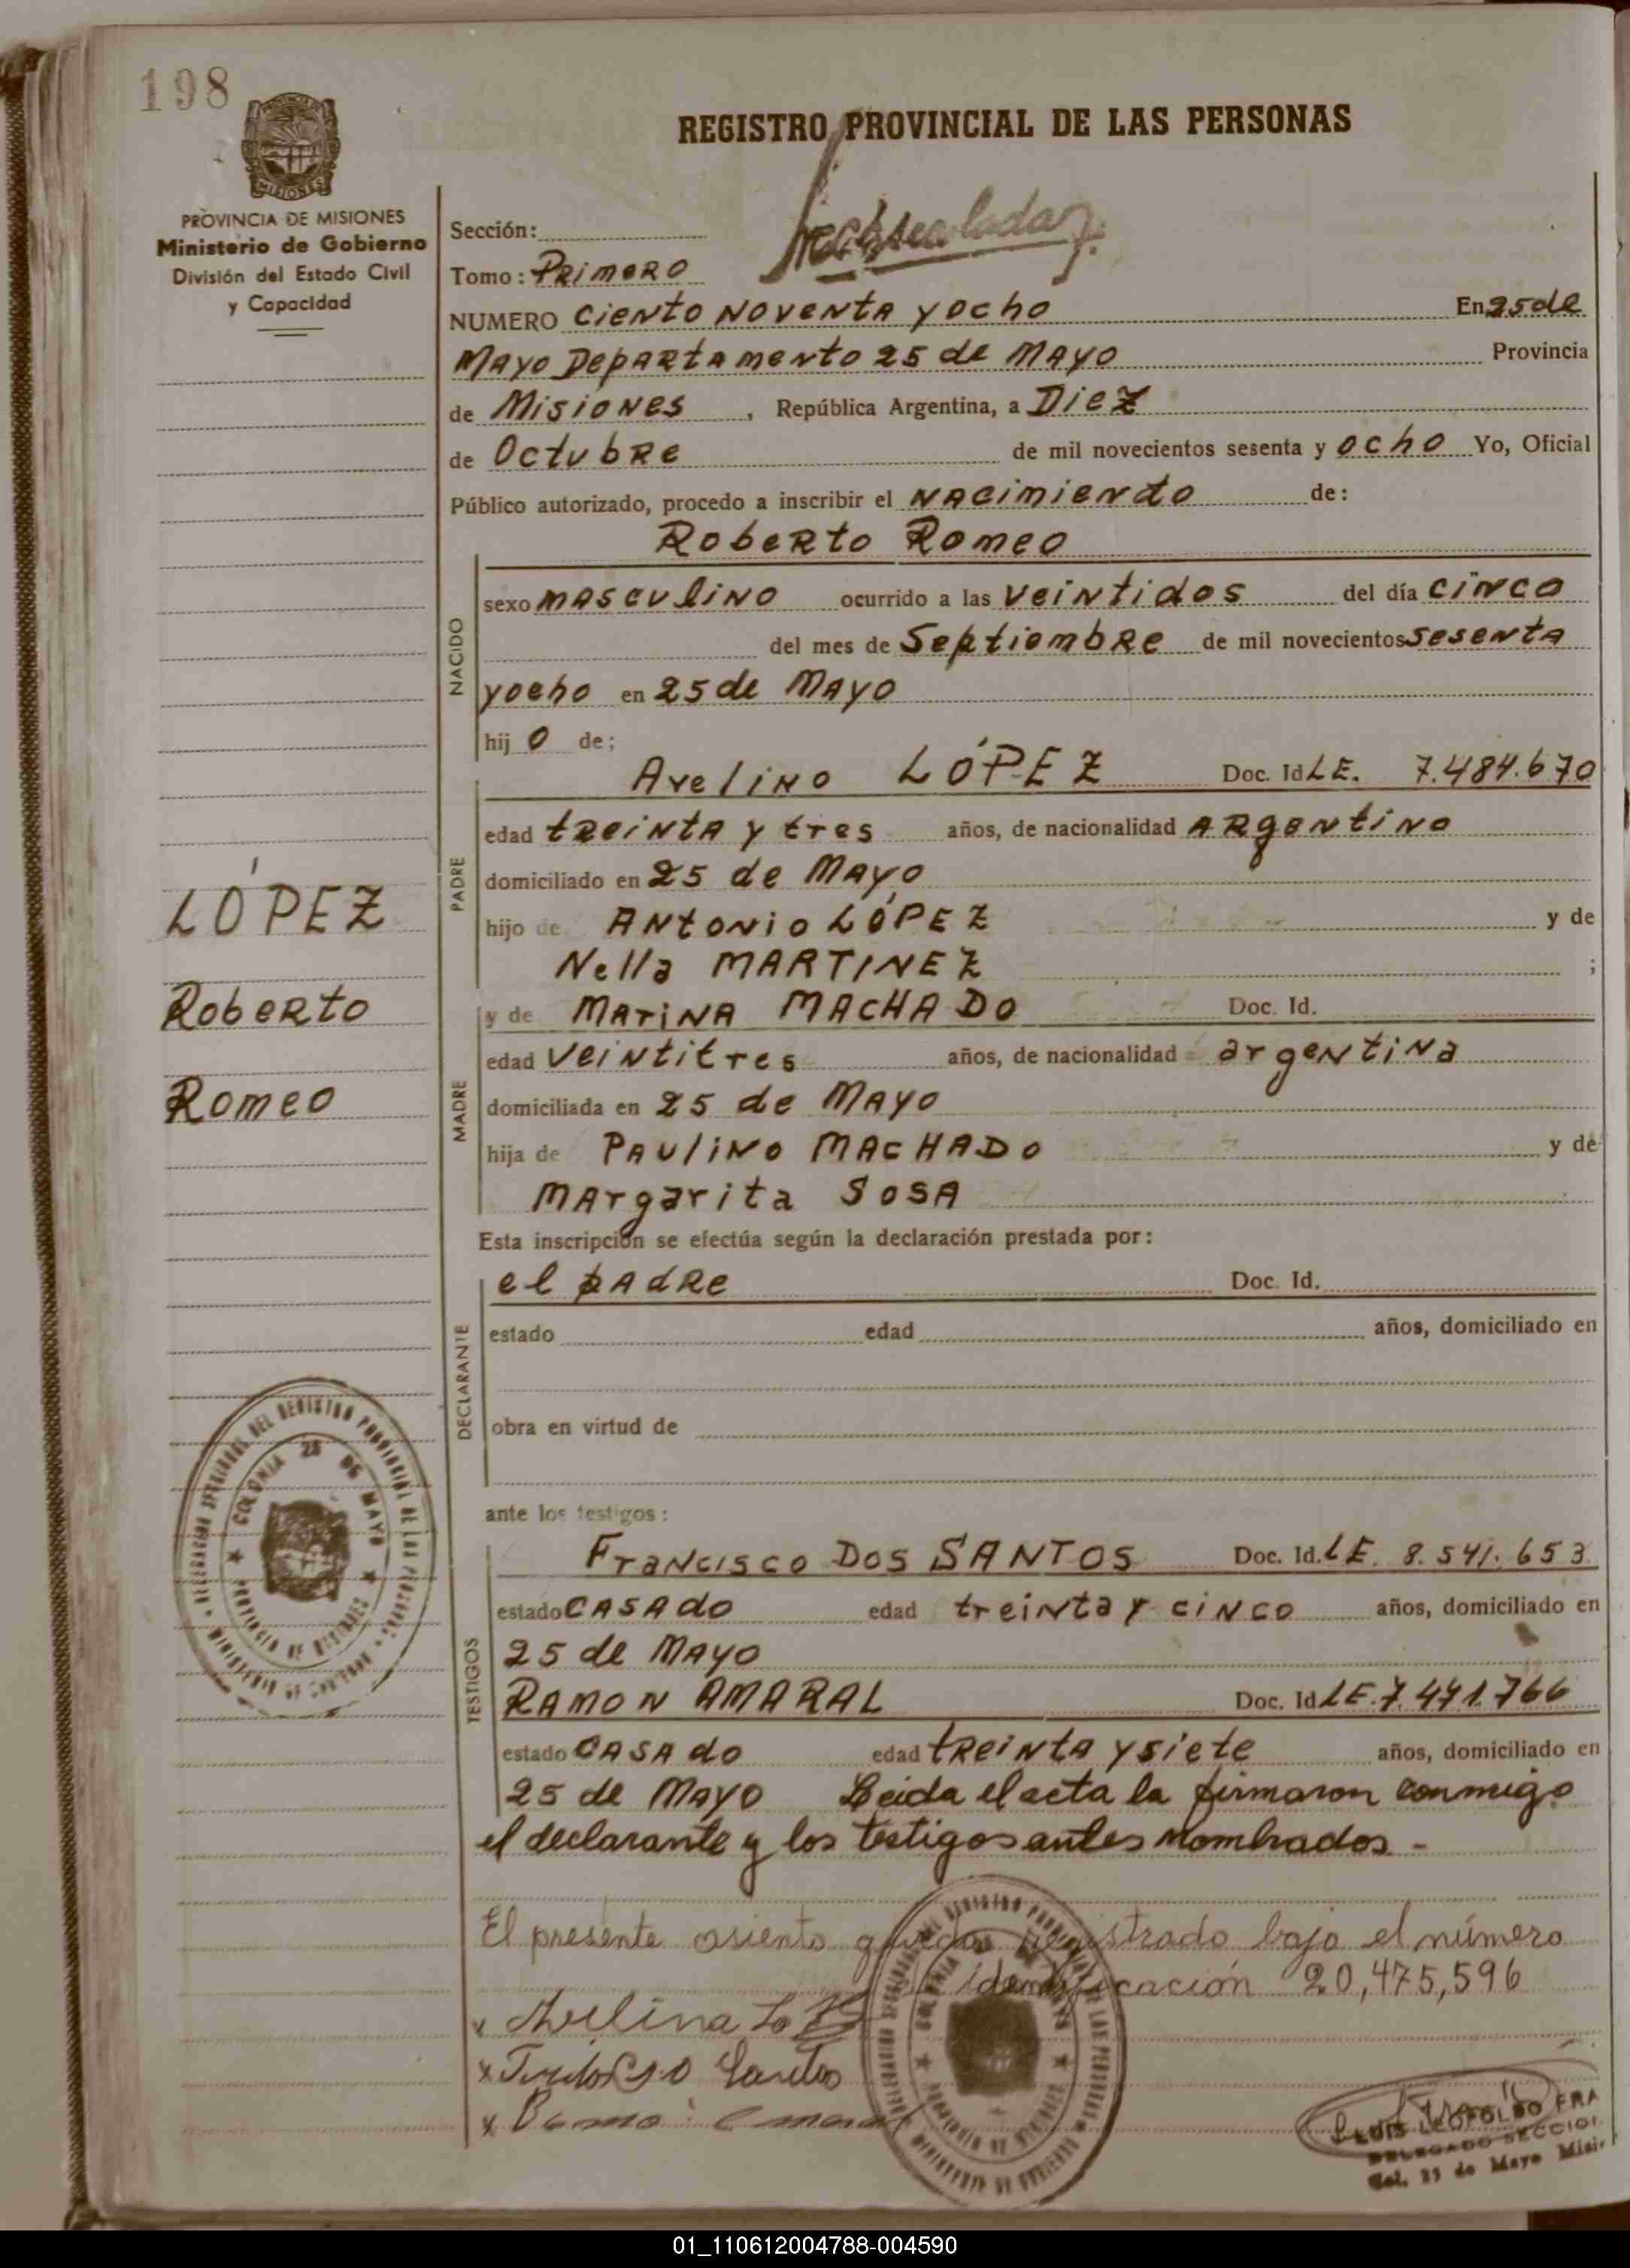 198
REGISTRO PROVINCIAL DE LAS PERSONAS
MISIONES
PROVINCIA DE MISIONES
Ministerio de Gobierno
División del Estado Civil
y Capacidad
Sección:
Tomo: Primero
NUMERO Ciento Noventa y ocho En 25 de
Mayo Departamento 25 de Mayo Provincia
de Misiones, República Argentina, a Diez
de Octubre de mil novecientos sesenta y ocho Yo, Oficial
Público autorizado, procedo a inscribir el nacimiento de:
Roberto Romeo
NACIDO
sexo masculino ocurrido a las veintidos del día cinco
del mes de Septiembre de mil novecientos sesenta
y ocho en 25 de Mayo
hij o de;
Avelino LÓPEZ Doc. Id LE. 7.484.670
PADRE
edad treinta y tres años, de nacionalidad Argentino
domiciliado en 25 de Mayo
hijo de Antonio LÓPEZ y de
Nella MARTINEZ ;
y de Marina MACHADO Doc. Id.
MADRE
edad veintitres años, de nacionalidad argentina
domiciliada en 25 de Mayo
hija de Paulino MACHADO y de
Margarita SOSA
LÓPEZ
Roberto
Romeo
Esta inscripción se efectúa según la declaración prestada por:
el padre Doc. Id.
DECLARANTE
estado edad años, domiciliado en
obra en virtud de
ante los testigos:
Francisco DOS SANTOS Doc. Id. LE. 8.541.653
TESTIGOS
estado casado edad treinta y cinco años, domiciliado en
25 de Mayo
RAMON AMARAL Doc. Id LE. 7.471.766
estado casado edad treinta y siete años, domiciliado en
25 de Mayo Leida el acta la firmaron conmigo
el declarante y los testigos antes nombrados.-
El presente asiento queda registrado bajo el número
identificación 20,475,596
COLONIA 25 DE MAYO
PROVINCIA DE MISIONES
MINISTERIO DE GOBIERNO
LUIS LEOPOLDO FRA
DELEGADO SECCIO
Col. 25 de Mayo Misi
01_110612004788-004590